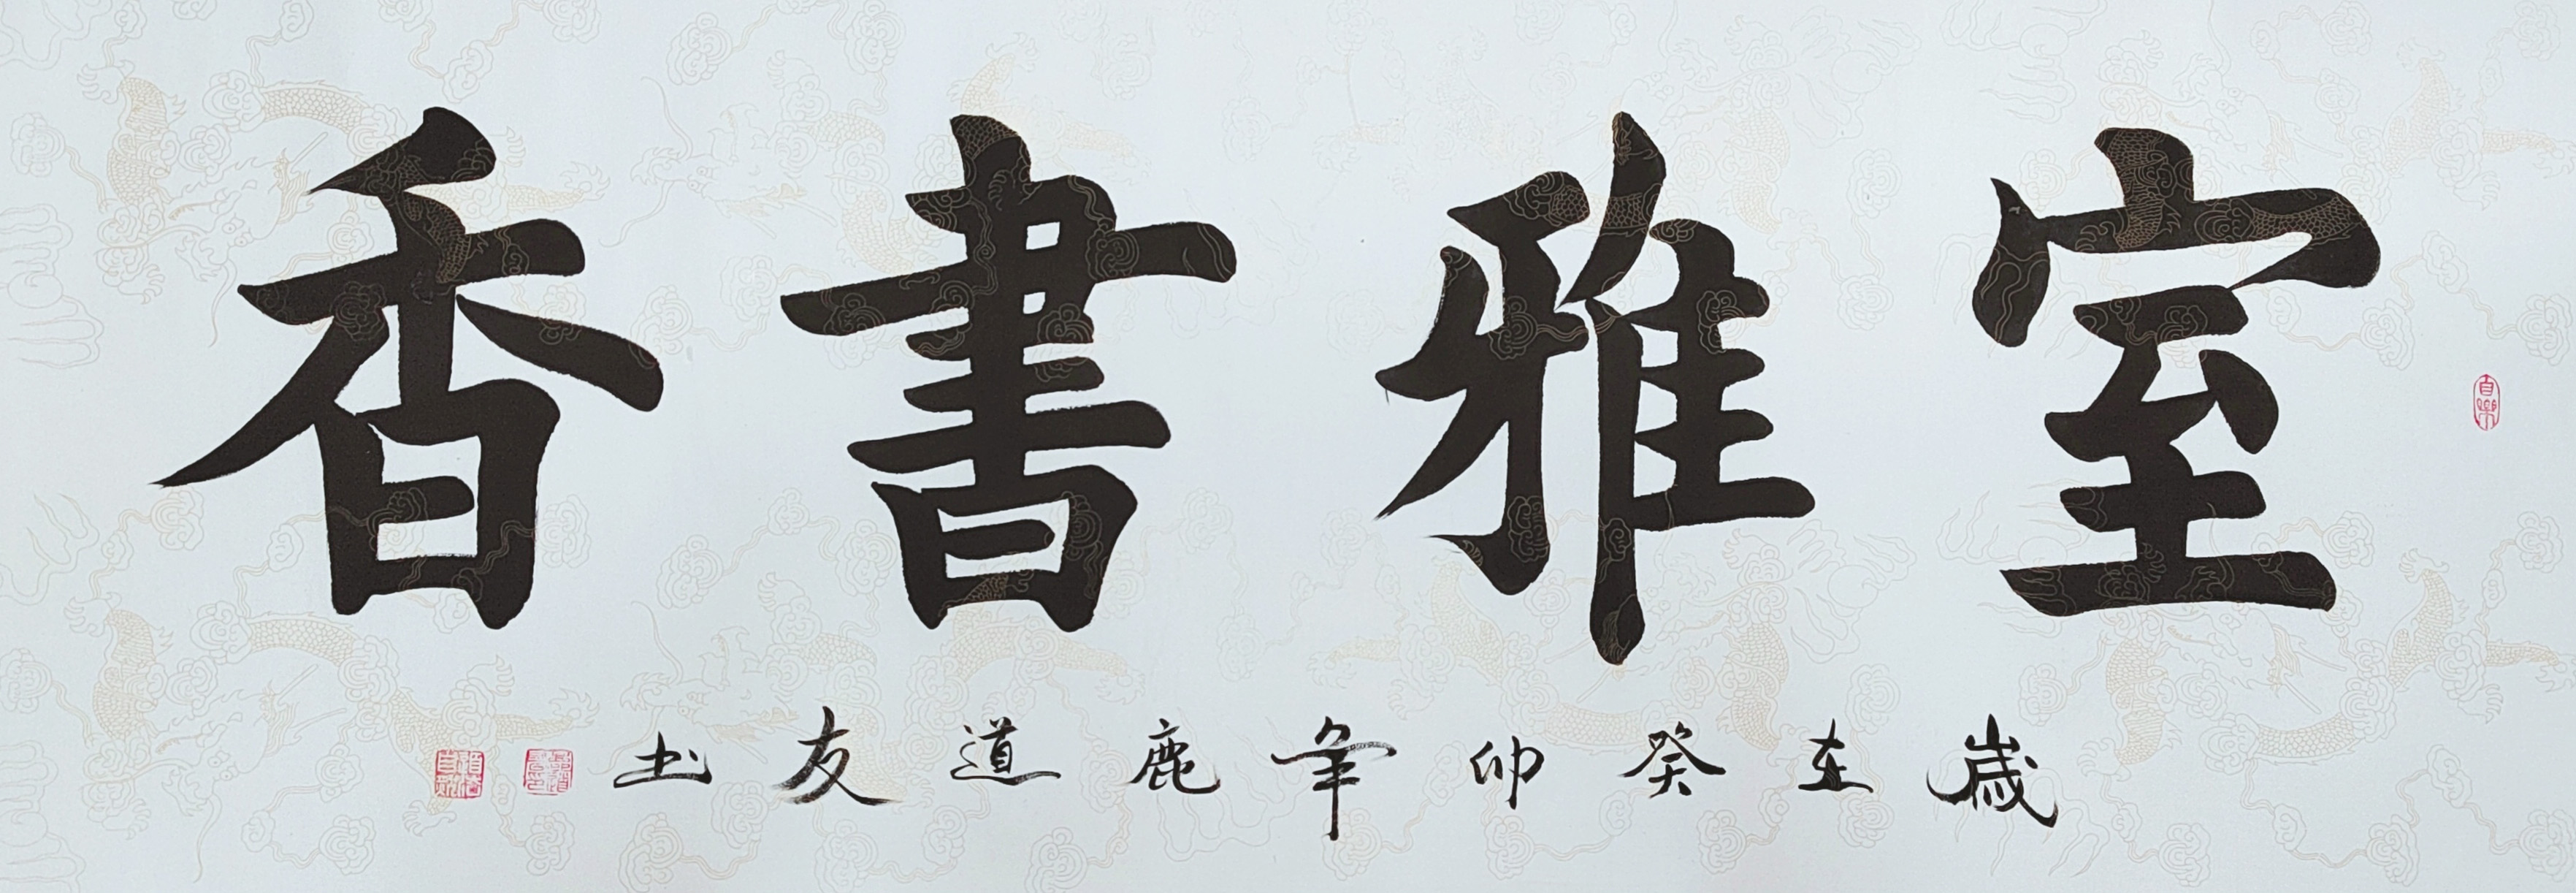 室雅書香
歲在癸卯年鹿道友书